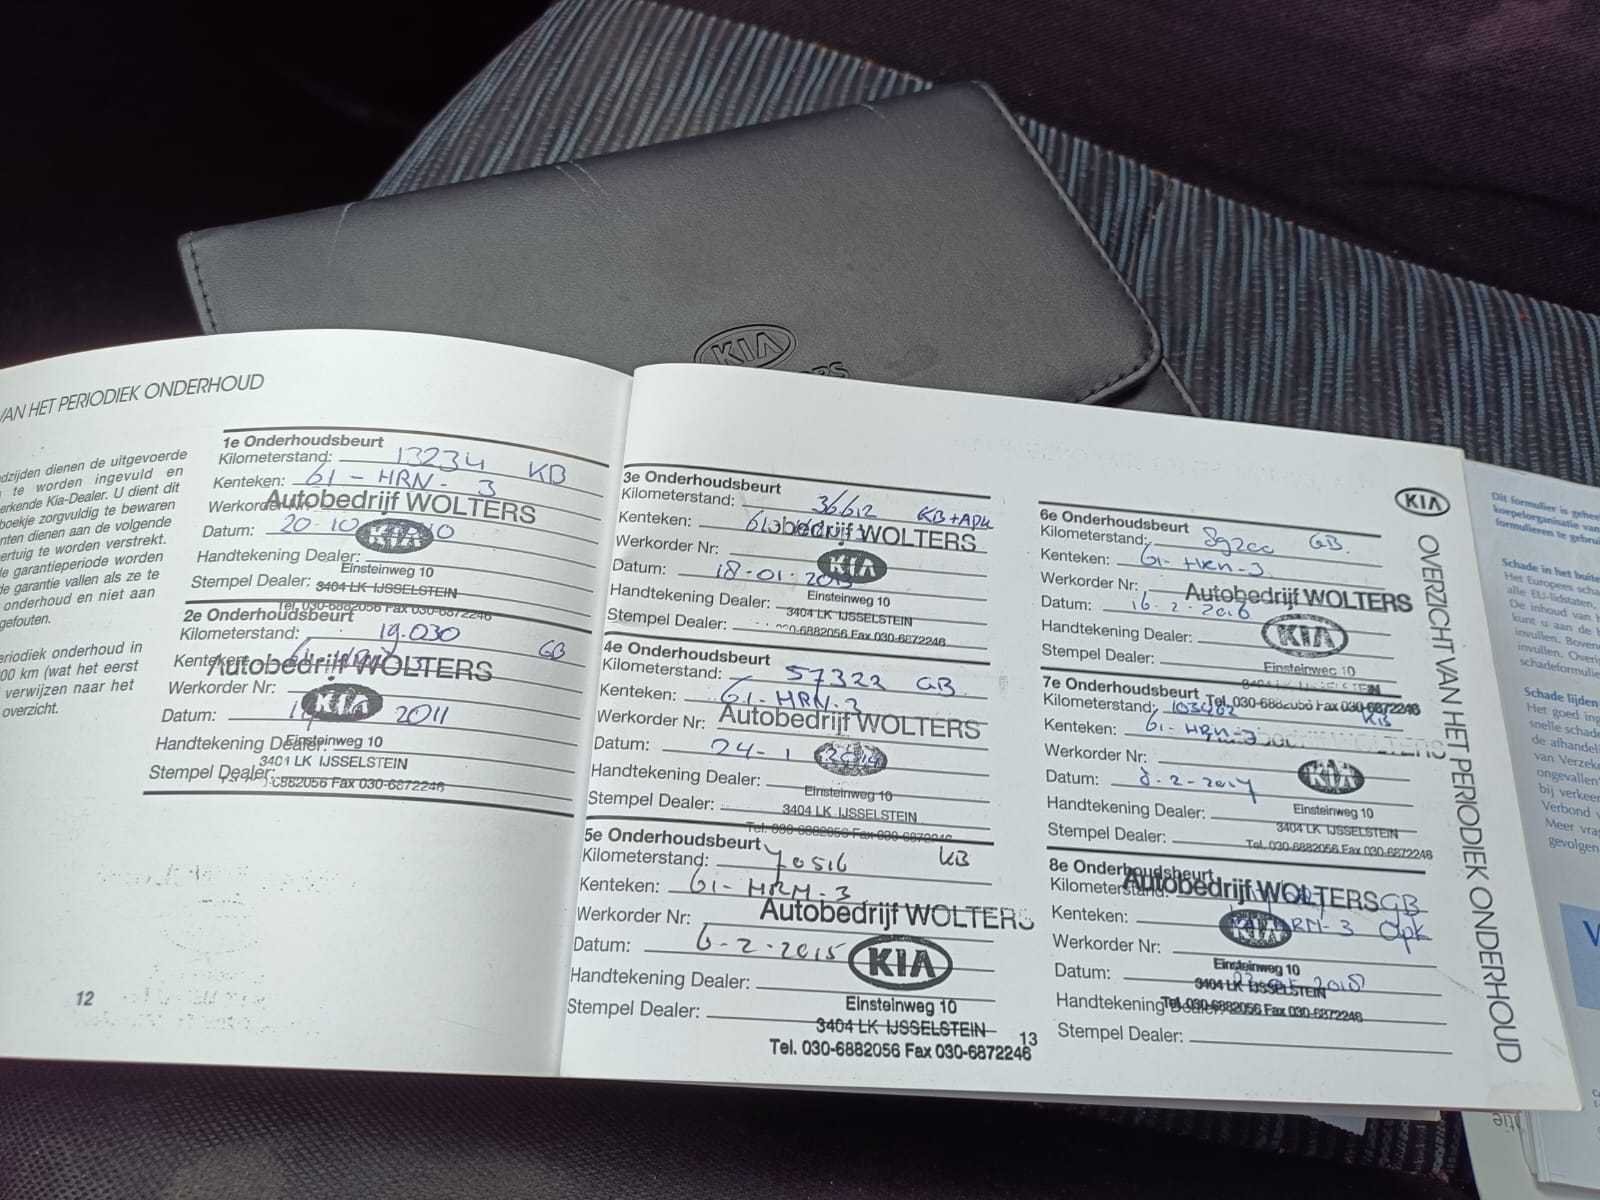 KIA
VAN HET PERIODIEK ONDERHOUD
dzijden dienen de uitgevoerde
te worden ingevuld en
erkende Kia-Dealer. U dient dit
boekje zorgvuldig te bewaren
nten dienen aan de volgende
ertuig te worden verstrekt.
de garantieperiode worden
de garantie vallen als ze te
onderhoud en niet aan
gefouten.
eriodiek onderhoud in
00 km (wat het eerst
verwijzen naar het
overzicht.
12
1e Onderhoudsbeurt
Kilometerstand: 13234 KB
Kenteken: 61-HRN-3
Autobedrijf WOLTERS
Werkorder
Datum: 20-10
KIA
Handtekening Dealer:
Einsteinweg 10
Stempel Dealer: 3404 LK IJSSELSTEIN
Tel. 030-6882056 Fax 030-6872246
2e Onderhoudsbeurt
Kilometerstand: 19.030 GB
Kenteken:
Autobedrijf WOLTERS
Werkorder Nr:
KIA
Datum: 2011
Handtekening Dealer:
Einsteinweg 10
3401 LK IJSSELSTEIN
Stempel Dealer:
Fax 030-6872246
3e Onderhoudsbeurt
Kilometerstand: 36612 KB+APK
Kenteken:
WOLTERS
Werkorder Nr:
KIA
Datum: 18-01-2013
Handtekening Dealer:
Einsteinweg 10
3404 LK IJSSELSTEIN
Stempel Dealer:
Fax 030-6872246
4e Onderhoudsbeurt
Kilometerstand: 57322 GB
Kenteken: 61-HRN-3
Werkorder Nr:
Autobedrijf WOLTERS
Datum: 24-1
Handtekening Dealer:
Einsteinweg 10
Stempel Dealer:
3404 LK IJSSELSTEIN
Tel. 030-6882056 Fax 030-6872246
5e Onderhoudsbeurt
Kilometerstand: 70516 KB
Kenteken: 61-HRM-3
Werkorder Nr:
Autobedrijf WOLTERS
Datum: 6-2-2015
KIA
Handtekening Dealer:
Einsteinweg 10
Stempel Dealer:
3404 LK IJSSELSTEIN
Tel. 030-6882056 Fax 030-6872246
13
6e Onderhoudsbeurt
Kilometerstand: GB.
Kenteken: 61-HRN-3
Werkorder Nr:
Autobedrijf WOLTERS
Datum: 16-2-2016
KIA
Handtekening Dealer:
Stempel Dealer:
Einsteinweg 10
3404 LK IJSSELSTEIN
Tel. 030-6882056 Fax 030-6872246
7e Onderhoudsbeurt
Kilometerstand: KB
Kenteken: 61-HRN-3
Werkorder Nr:
KIA
Datum: 8-2-2017
Handtekening Dealer:
Einsteinweg 10
Stempel Dealer:
3404 LK IJSSELSTEIN
Tel. 030-6882056 Fax 030-6872246
8e Onderhoudsbeurt
Autobedrijf WOLTERS
Kilometerstand: GB
Kenteken: RM-3 apk
KIA
Werkorder Nr:
Einsteinweg 10
Datum: 2018
3404 LK IJSSELSTEIN
Handtekening
Tel. 030-6882056 Fax 030-6872246
Stempel Dealer:
KIA
OVERZICHT VAN HET PERIODIEK ONDERHOUD
Dit formulier is
koepelorganisatie van
formulieren te
Schade in het
Het Europees
alle EU-lidstaten,
De inhoud van
kunt u aan de
invullen.
invullen.
Schade lijden
Het goed
snelle
de
van
bij
Verbond
Meer